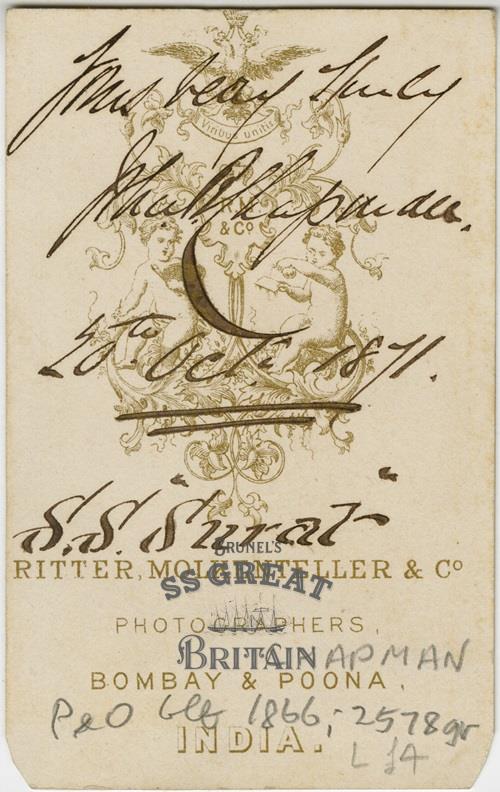 Yours very truly
Viribus unitis
John
& Co
20th Oct. 1871.
S.S. "Surat"
RITTER, MOLKENTELLER & Co
BRUNEL'S
SS GREAT
BRITAIN
PHOTOGRAPHERS,
CHAPMAN
BOMBAY & POONA,
P&O 1866; 2578gr
INDIA.